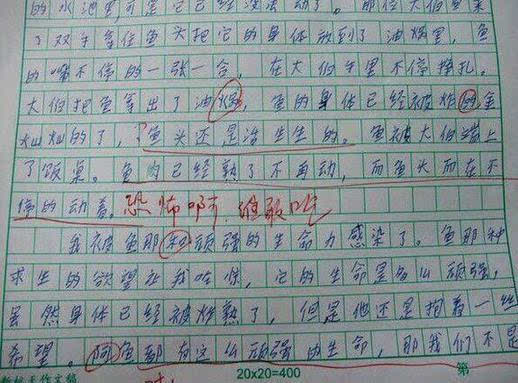 的水池里,可是它已经没法动了。那位大伯鱼来
了双手拿住鱼头把它的身体放到了油烟里,鱼
的嘴不停的一张一合,在大伯手里不停挣扎。
大伯把鱼拿出了油烟,鱼的身体已经被炸的金
灿灿的了,鱼头还是活生生的。鱼被大伯端上
了饭桌。鱼肉已经熟了不再动,而鱼头而在不
停的动着。恐怖啊,谁敢吃
我被鱼那种顽强的生命力感染了。鱼那种
求生的欲望让我吃惊,它的生命是多么顽强,
虽然身体已经被炸熟了,但是他还是抱着一丝
希望。阿鱼都有这么顽强的生命,那我们不是
20x20=400
第